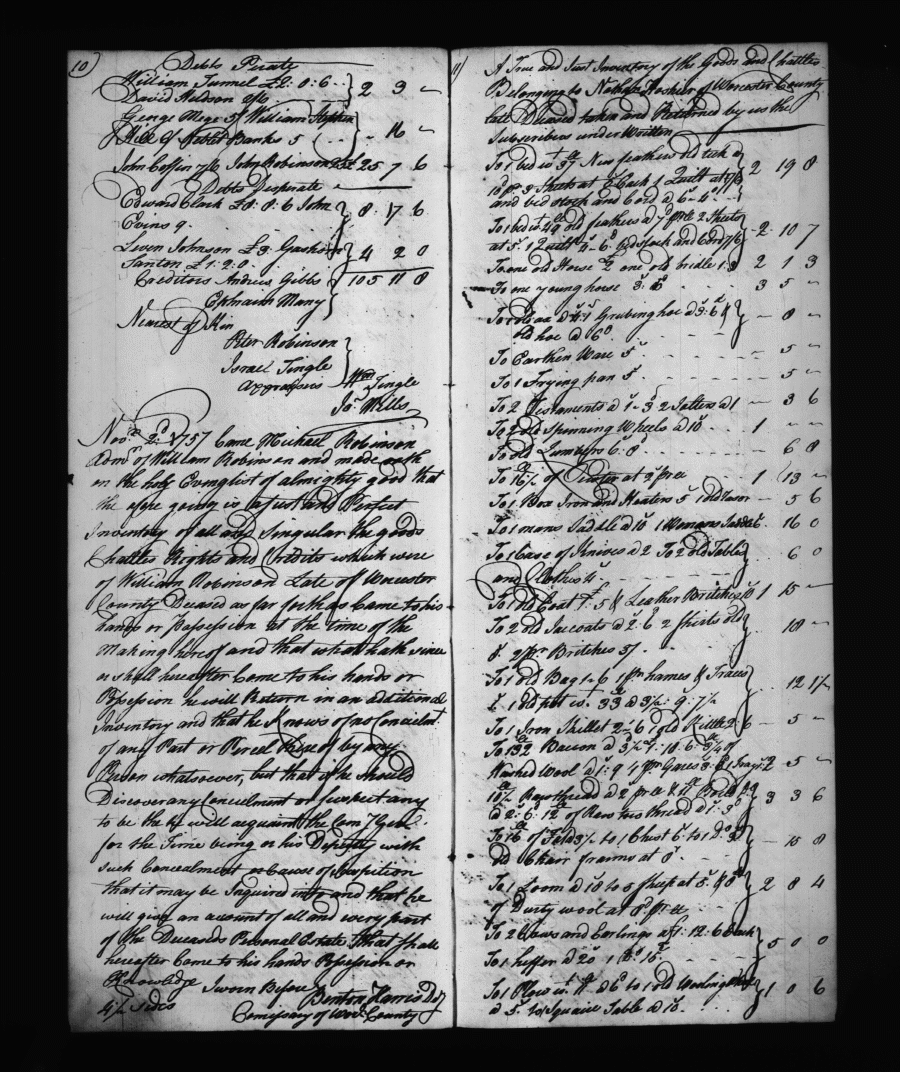 10
Debts Perate
William Tunnel £2: 0: 6
David Hudson 2/6 } 2 3 ~
George Mege 5/ William Stephen
& Will of Banks 5 } 16 ~
John Coffin 7/6 John Robinson 25 7 6
Debts Desperate
Edward Clark £8: 8: 6 John
Evins 9. } 8: 17 6
Leven Johnson £3: Gashom
Santon £1: 2: 0 } 4 2 0
Creditors Andrew Gibbs 105 11 8
Ephraim Many }
Nearest of Kin
Peter Robinson
Israel Tingle }
Appraisers Wm Tingle
Jas Mills
Novr 2d 1757 Came Michael Robinson
Admr of William Robinson and made oath
on the holy Evanglist of almighty good that
the afore going is a just and Perfect
Inventory of all and Singular the goods
Chattles Rights and Credits which were
of William Robinson Late of Worcester
County Deceased as far forth as Came to his
hands or Possession at the time of the
Making hereof and that what hath since
or shall hereafter Come to his hands or
Possession he will Return in an additional
Inventory and that he Knows of no Concealmt
of any Part or Parcel thereof by any
Person whatsoever, but that if he should
Discover any Concealment or suspect any
to be the he will acquaint the Com'y Genl.
for the Time being or his Deputy with
such Concealment or Cause of Suspition
that it may be Inquired into and that he
will give an account of all and every part
of the Deceaseds Personal Estate that shall
hereafter Come to his hands Possession or
Knowledge Sworn Before Benton Harris Dty
4½ sides Comissary of Worr County
11)
A True and Just Inventory of the Goods and Chattles
Belonging to Nathan Hoshier of Worcester County
late Deceased taken and Returned by us the
Subscribers under Written
To 1 bed wt 37 New feathers old tick a
18 pr 3 Sheets at 2 Each 1 Quilt at 7/6
and bed stock and Cord a 6~4 } 2 19 8
To 1 bed wt 49 old feathers a pr lb 2 Sheets
at 5. 1 Quilt 4~6 bedstock and Cord 7/6 } 2 10 7
To one old Horse £2 one old bridle 1:3 2 1 3
To one young horse 3: 5 3 5 ~
To 1 old ax a 4 1 Grubing hoe a 3:6 &
old hoe a 6d } ~ 8 ~
To Earthen Ware 5 ~ 5 ~
To 1 Frying pan 5 ~ 5 ~
To 2 Testaments a 1~3 2 Salters a 1 ~ 3 6
To 2 old Spinning Wheels a 10 1 ~ ~
To old Lumbers 6:8 ~ 6 8
To 16½ of Pewter at 2 pr lb 1 13 ~
To 1 Box Iron and Heaters 5 1 old Razor ~ 5 6
To 1 mans Saddle a 10 1 Womans Saddle 6 16 0
To 1 Case of Knives a 2 To 2 old Table
and Cloths 4 } 6 0
To 1 old Coat £ : 5 & Leather Britches 10 1 15 ~
To 2 old Jaccoats a 2:6 2 shirts old
& 2 pr Britches 5/ } 18 ~
To 1 old Bag 1~6 1 pr hames & Traces
1 old pot wt 33 a 3½: 9: 7½ } 12 1½
To 1 Iron Skillet 2~6 1 old Kittle 2:6 ~ 5 ~
To 132 Bacon a 3½: 1: 18: 6: 3¼ of
Washed Wool a 1:9 1 pr Gares 3: & 1 Tray 2 5 ~
18½ Rawthread a 2 pr lb
a 2:6: 12 of Raw tow thread a 1:3 } 3 3 6
To 16 of 3/ to 1 Chest 6: to 1
old Chair fraims at 8 } ~ 10 8
To 1 Loom a 10 to 5 Sheep at 5: & 8
of Dirty wool at 8 pr lb } 2 8 4
To 2 Cows and Earlings a £1: 12: 6 Each
To 1 heffer a 20 1 Do: 15 } 5 0 0
To 1 Plow wt a 6d to 1 old
a 5 to 1 Squair Table a 10 } 1 0 6